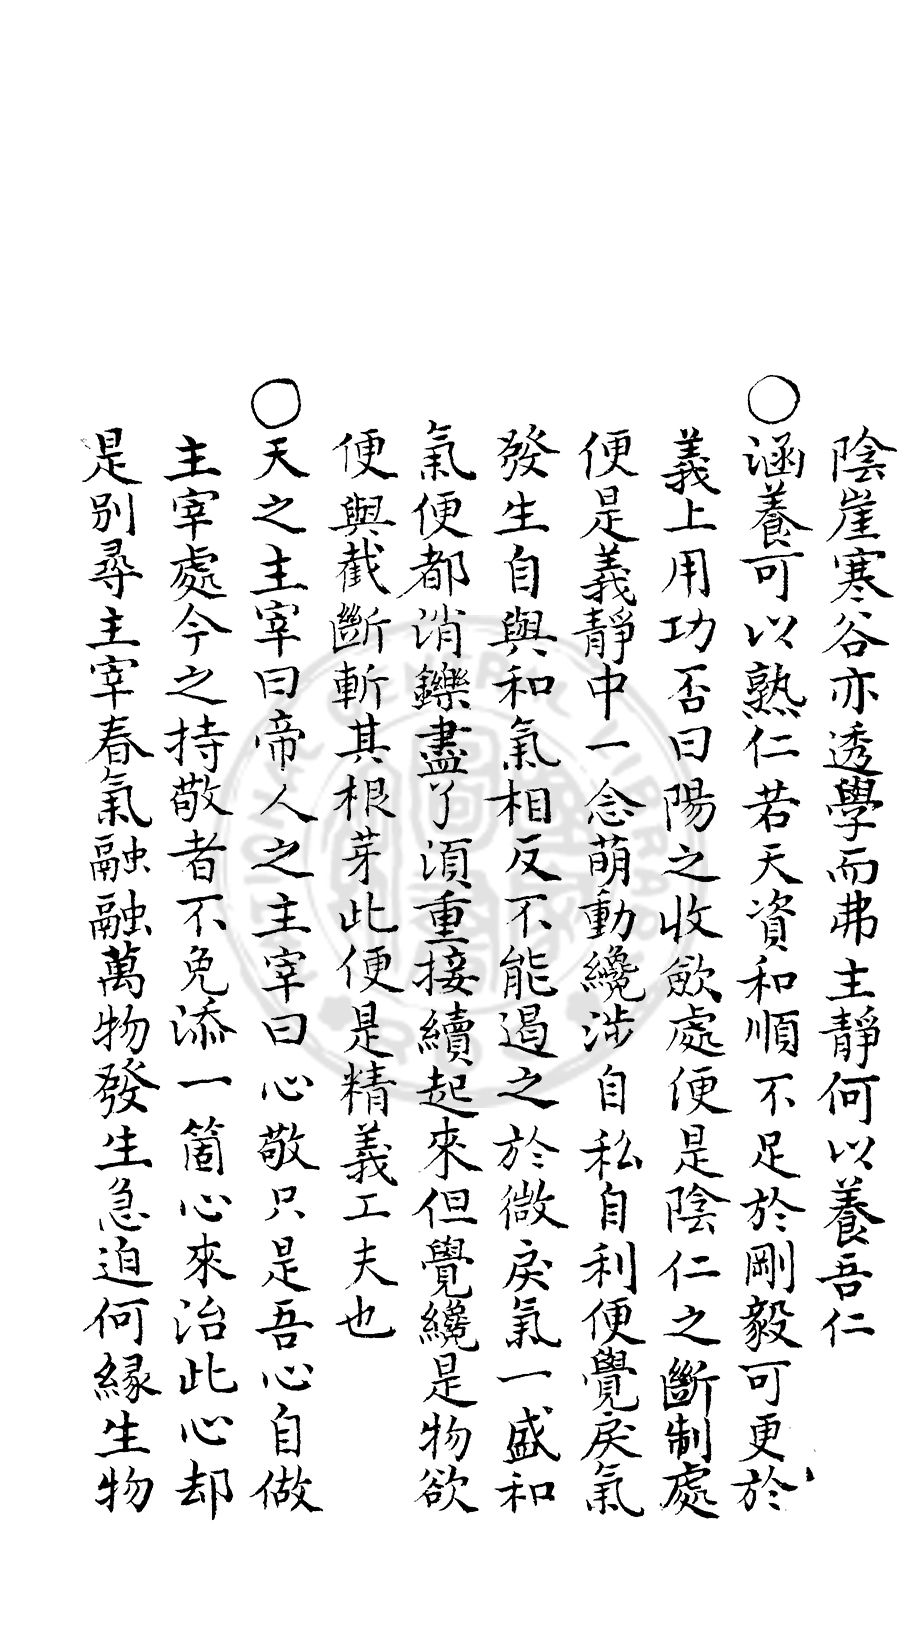 陰崖寒谷亦透學而弗主靜何以養吾仁
○涵養可以熟仁若天資和順不足於剛毅可更於
義上用功否曰陽之收斂處便是陰仁之斷制處
便是義靜中一念萌動纔涉自私自利便覺戾氣
發生自與和氣相反不能遏之於微戾氣一盛和
氣便都消鑠盡了須重接續起來但覺纔是物欲
便與截斷斬其根芽此便是精義工夫也
○天之主宰曰帝人之主宰曰心敬只是吾心自做
主宰處今之持敬者不免添一箇心來治此心却
是別尋主宰春氣融融萬物發生急迫何緣生物